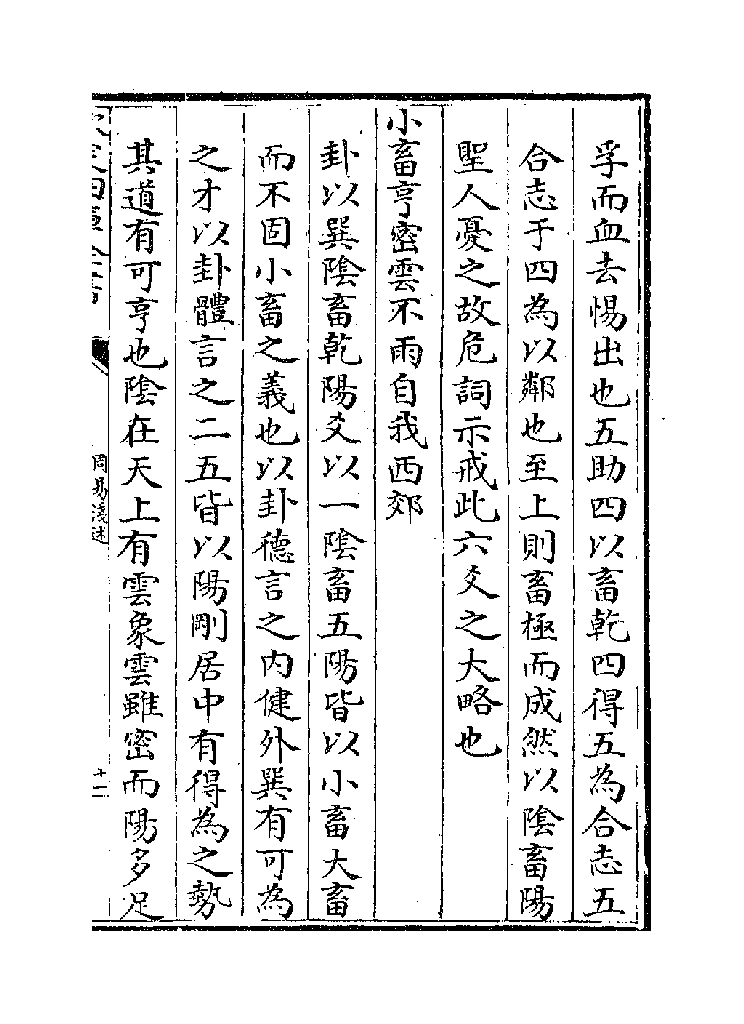 孚而血去惕出也五助四以畜乾四得五為合志五
合志于四為以鄰也至上則畜極而成然以陰畜陽
聖人憂之故危詞示戒此六爻之大略也
小畜亨密雲不雨自我西郊
卦以巽陰畜乾陽爻以一陰畜五陽皆以小畜大畜
而不固小畜之義也以卦德言之内健外巽有可為
之才以卦體言之二五皆以陽剛居中有得為之勢
其道有可亨也陰在天上有雲象雲雖密而陽多足
周易淺述
十二